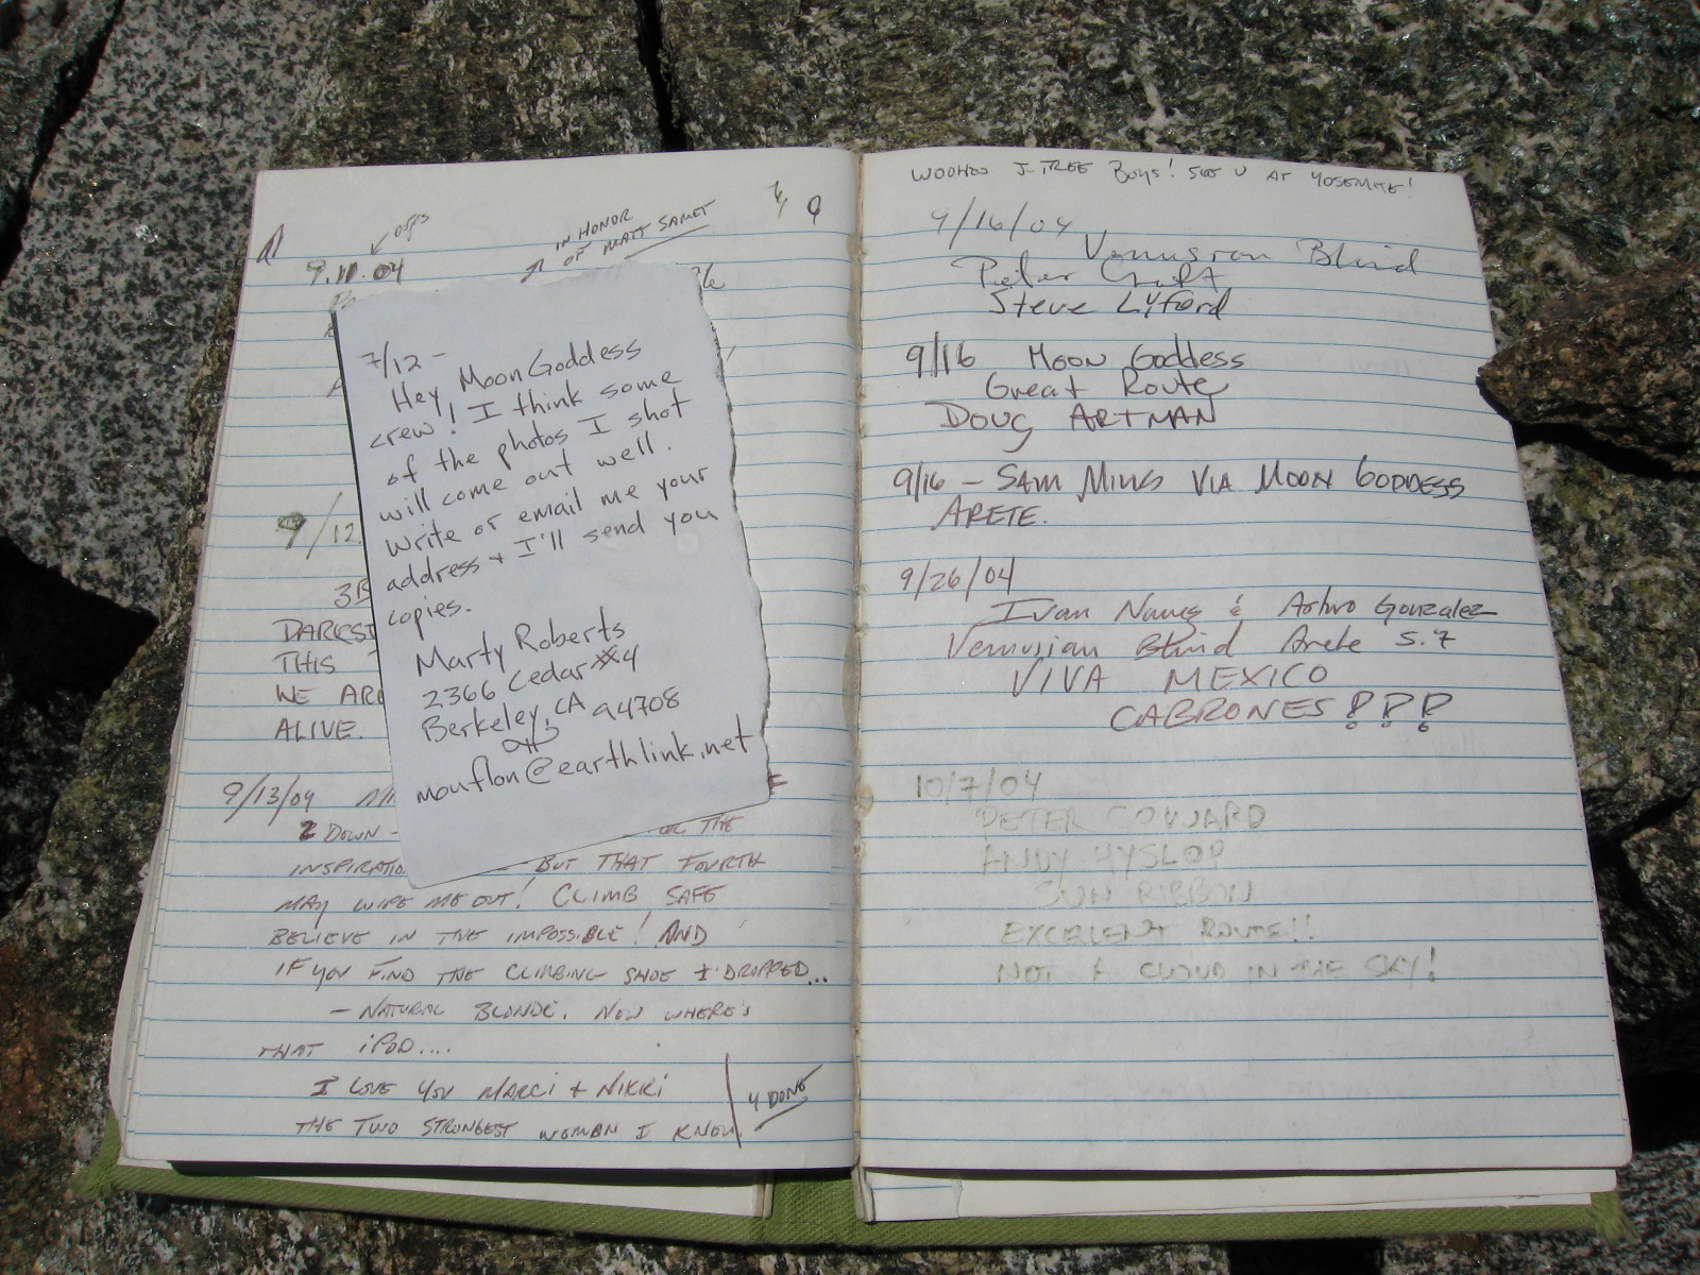 oops
9.11.04
IN HONOR
OF MATT SAMET
9/12
3B
THIS
WE ARE
ALIVE.
7/12 -
Hey Moon Goddess
crew! I think some
of the photos I shot
will come out well.
Write or email me your
address + I'll send you
copies.
Marty Roberts
2366 Cedar #4
Berkeley, CA 94708
mouflon@earthlink.net
9/13/04
2 DOWN - OR THE
INSPIRATION BUT THAT FOURTH
MAY WIPE ME OUT! CLIMB SAFE
BELIEVE IN THE IMPOSSIBLE! AND
IF YOU FIND THE CLIMBING SHOE I DROPPED...
- NATURAL BLONDE. NOW WHERE'S
THAT iPOD....
I LOVE YOU MARCI + NIKKI
THE TWO STRONGEST WOMAN I KNOW.
4 DONE
WOOHOO J-TREE BOYS! SEE U AT YOSEMITE!
9/16/04
Venusian Blind
Peter
Steve Lyford
9/16 Moon Goddess
Great Route
DOUG ARTMAN
9/16 - SAM MING VIA MOON GODDESS
ARETE.
9/26/04
Ivan Nanes & Arturo Gonzalez
Venusian Blind Arete 5.7
VIVA MEXICO
CABRONES!!!
10/7/04
PETER COWARD
ANDY HYSLOP
SUN RIBBON
EXCELLENT ROUTE!!
NOT A CLOUD IN THE SKY!